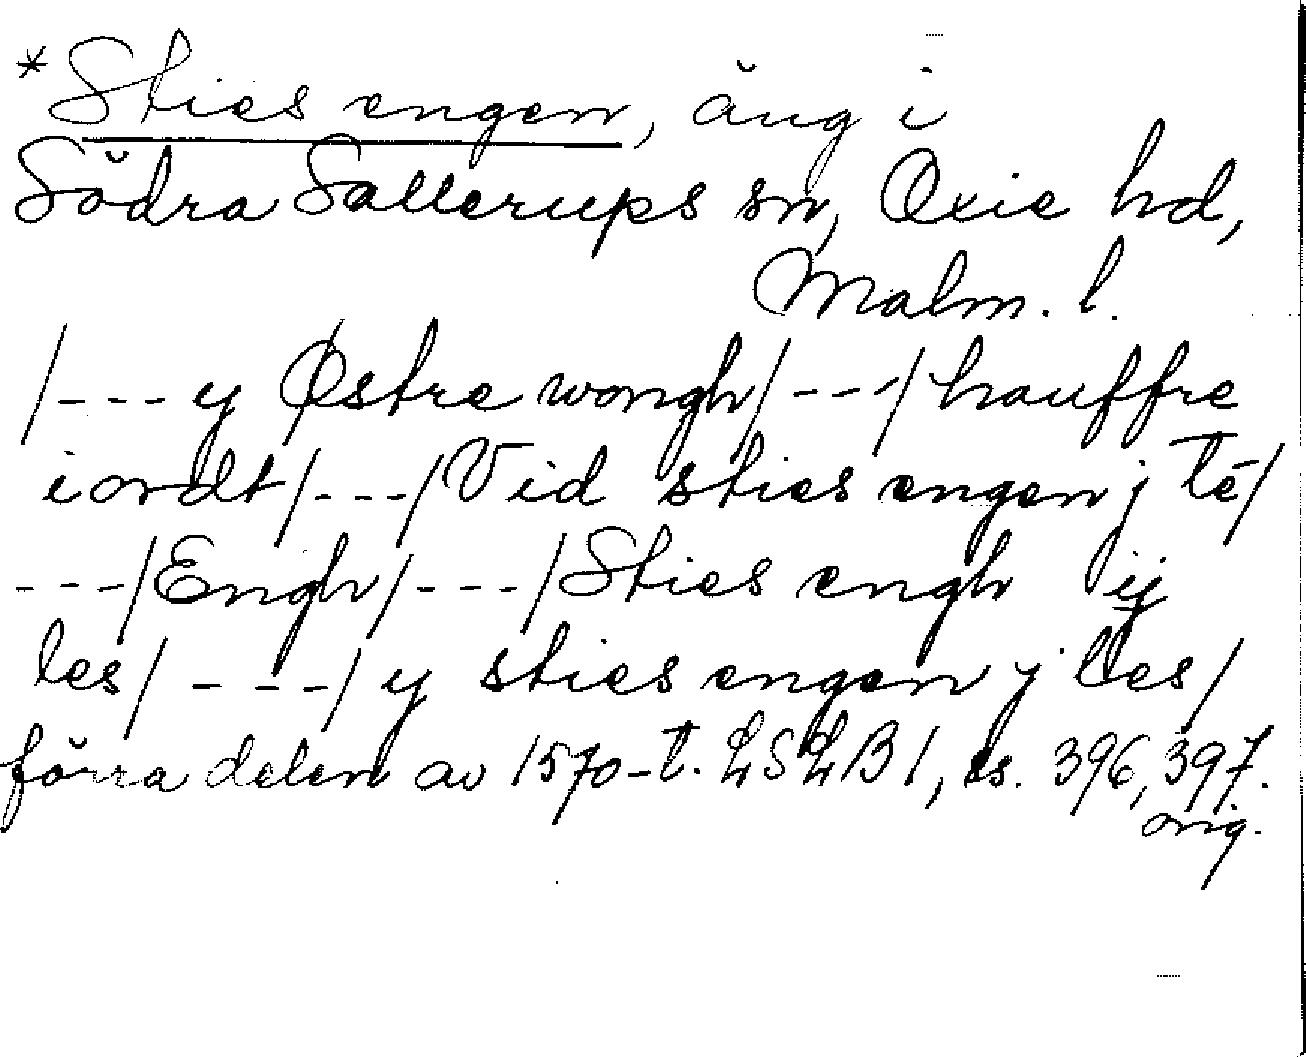 *Sties engen, äng i
Södra Sallerups sn, Oxie hd,
Malm. l.
/---y Østre wongh/---/hauffre
iordt/---/Vid sties engen j te/
---/Engh/---/Sties engh ij
les/---/y sties engen y les/
förra delen av 1570-t. LSLB 1, ss. 396, 397.
orig.